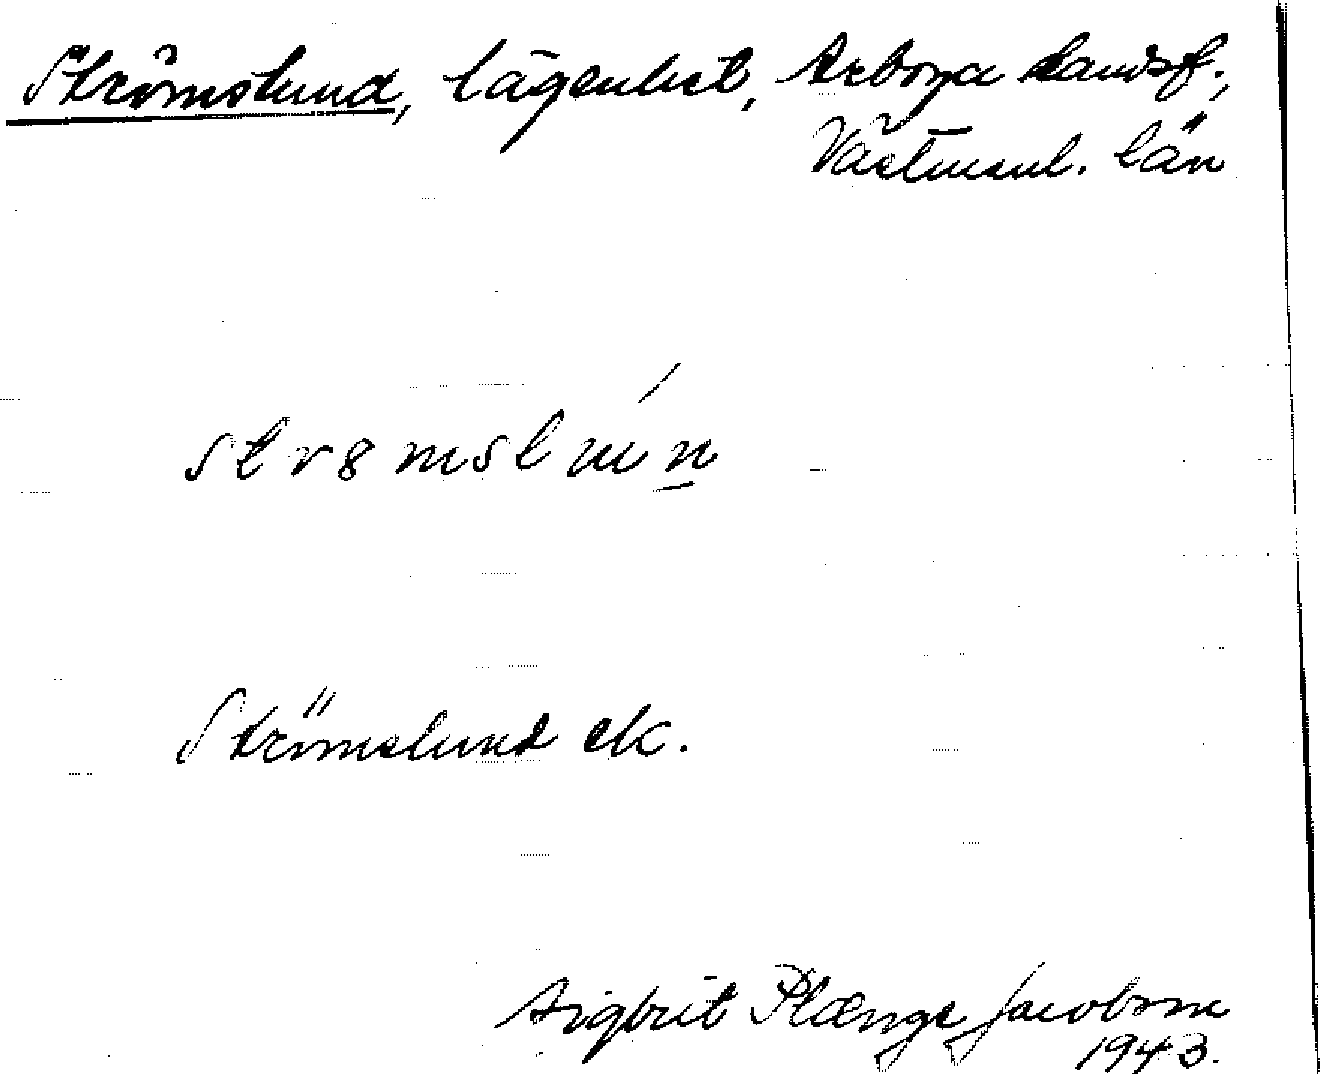 Strömslund, lägenhet, Arboga landsf.,
Västmanl. län
str8mslún
Strömslund ek.
Sigbrit Plænge Jacobson
1943.